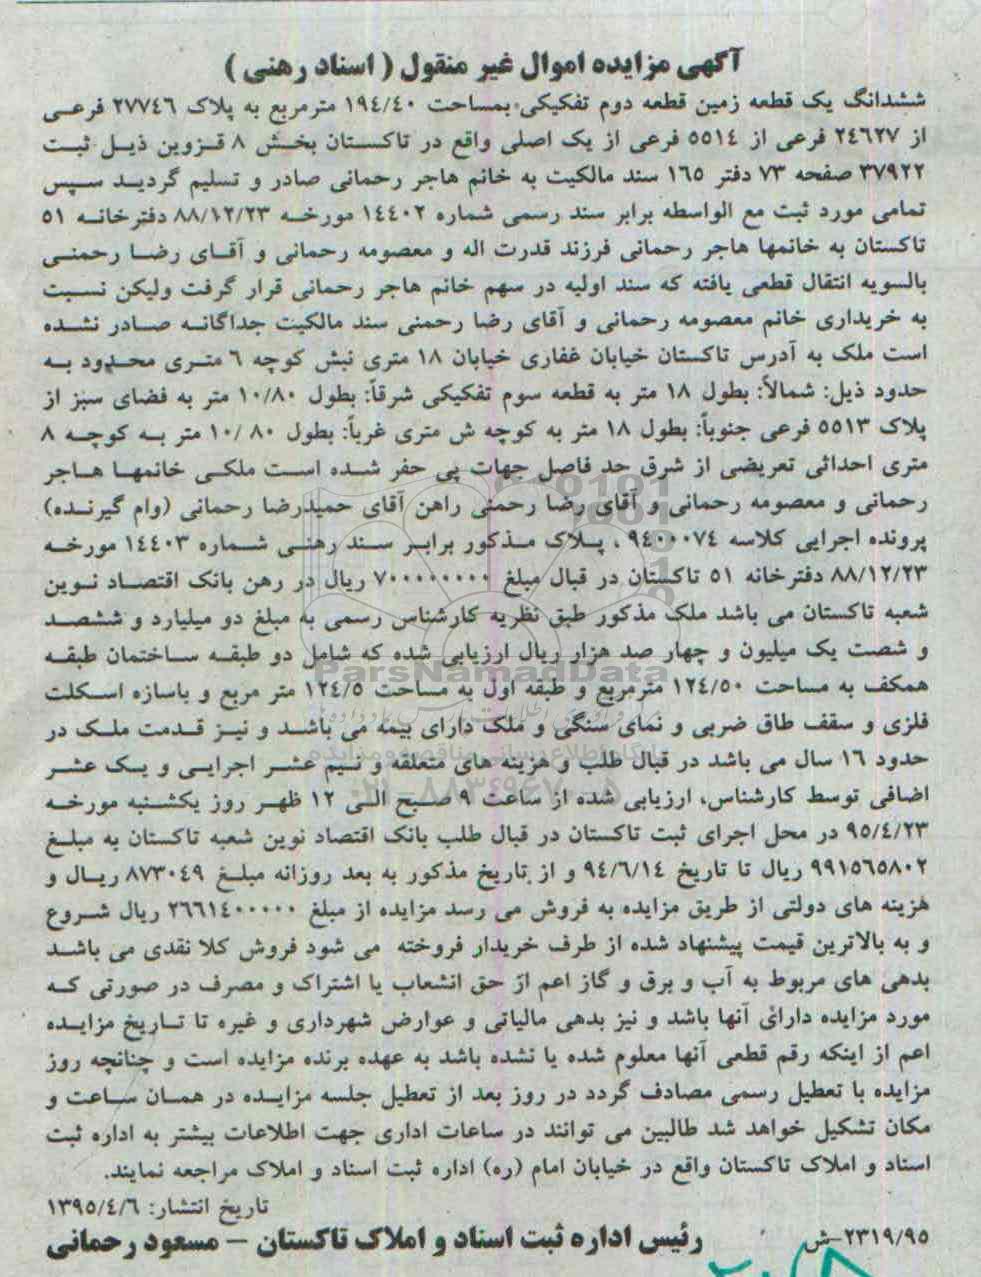 آگهی مزایده اموال غیر منقول ( اسناد رهنی )
ششدانگ یک قطعه زمین قطعه دوم تفکیکی بمساحت ۱۹٤/٤۰ مترمربع به پلاک ۲۷۷٤٦ فرعی
از ۲٤٦۲۷ فرعی از ٥٥۱٤ فرعی از یک اصلی واقع در تاکستان بخش ۸ قزوین ذیل ثبت
۳۷۹۲۲ صفحه ۷۳ دفتر ۱٦٥ سند مالکیت به خانم هاجر رحمانی صادر و تسلیم گردید سپس
تمامی مورد ثبت مع الواسطه برابر سند رسمی شماره ۱٤٤۰۲ مورخه ۸۸/۱۲/۲۳ دفترخانه ٥۱
تاکستان به خانمها هاجر رحمانی فرزند قدرت اله و معصومه رحمانی و آقای رضا رحمنی
بالسویه انتقال قطعی یافته که سند اولیه در سهم خانم هاجر رحمانی قرار گرفت ولیکن نسبت
به خریداری خانم معصومه رحمانی و آقای رضا رحمنی سند مالکیت جداگانه صادر نشده
است ملک به آدرس تاکستان خیابان غفاری خیابان ۱۸ متری نبش کوچه ٦ متری محدود به
حدود ذیل: شمالاً: بطول ۱۸ متر به قطعه سوم تفکیکی شرقاً: بطول ۱۰/۸۰ متر به فضای سبز از
پلاک ٥٥۱۳ فرعی جنوباً: بطول ۱۸ متر به کوچه ش متری غرباً: بطول ۸۰ /۱۰ متر به کوچه ۸
متری احداثی تعریضی از شرق حد فاصل جهات پی حفر شده است ملکی خانمها هاجر
رحمانی و معصومه رحمانی و آقای رضا رحمنی راهن آقای حمیدرضا رحمانی (وام گیرنده)
پرونده اجرایی کلاسه ۹٤۰۰۰۷٤ ، پلاک مذکور برابر سند رهنی شماره ۱٤٤۰۳ مورخه
۸۸/۱۲/۲۳ دفترخانه ٥۱ تاکستان در قبال مبلغ ۷۰۰۰۰۰۰۰۰ ریال در رهن بانک اقتصاد نوین
شعبه تاکستان می باشد ملک مذکور طبق نظریه کارشناس رسمی به مبلغ دو میلیارد و ششصد
و شصت یک میلیون و چهار صد هزار ریال ارزیابی شده که شامل دو طبقه ساختمان طبقه
همکف به مساحت ۱۲٤/٥۰ مترمربع و طبقه اول به مساحت ۱۲٤/٥ متر مربع و باسازه اسکلت
فلزی و سقف طاق ضربی و نمای سنگی و ملک دارای بیمه می باشد و نیز قدمت ملک در
حدود ۱٦ سال می باشد در قبال طلب و هزینه های متعلقه و نیم عشر اجرایی و یک عشر
اضافی توسط کارشناس، ارزیابی شده از ساعت ۹ صبح الی ۱۲ ظهر روز یکشنبه مورخه
۹٥/٤/۲۳ در محل اجرای ثبت تاکستان در قبال طلب بانک اقتصاد نوین شعبه تاکستان به مبلغ
۹۹۱٥٦٥۸۰۲ ریال تا تاریخ ۹٤/٦/۱٤ و از تاریخ مذکور به بعد روزانه مبلغ ۸۷۳۰٤۹ ریال و
هزینه های دولتی از طریق مزایده به فروش می رسد مزایده از مبلغ ۲٦٦۱٤۰۰۰۰۰ ریال شروع
و به بالاترین قیمت پیشنهاد شده از طرف خریدار فروخته می شود فروش کلا نقدی می باشد
بدهی های مربوط به آب و برق و گاز اعم از حق انشعاب یا اشتراک و مصرف در صورتی که
مورد مزایده دارای آنها باشد و نیز بدهی مالیاتی و عوارض شهرداری و غیره تا تاریخ مزایده
اعم از اینکه رقم قطعی آنها معلوم شده یا نشده باشد به عهده برنده مزایده است و چنانچه روز
مزایده با تعطیل رسمی مصادف گردد در روز بعد از تعطیل جلسه مزایده در همان ساعت و
مکان تشکیل خواهد شد طالبین می توانند در ساعات اداری جهت اطلاعات بیشتر به اداره ثبت
اسناد و املاک تاکستان واقع در خیابان امام (ره) اداره ثبت اسناد و املاک مراجعه نمایند.
تاریخ انتشار: ۱۳۹٥/٤/٦
رئیس اداره ثبت اسناد و املاک تاکستان – مسعود رحمانی
۲۳۱۹/۹٥-ش
ParsNamadData
پایگاه اطلاع رسانی مناقصه و مزایده
۰۲۱-۸۸۳٤۹٦۷۰-٥